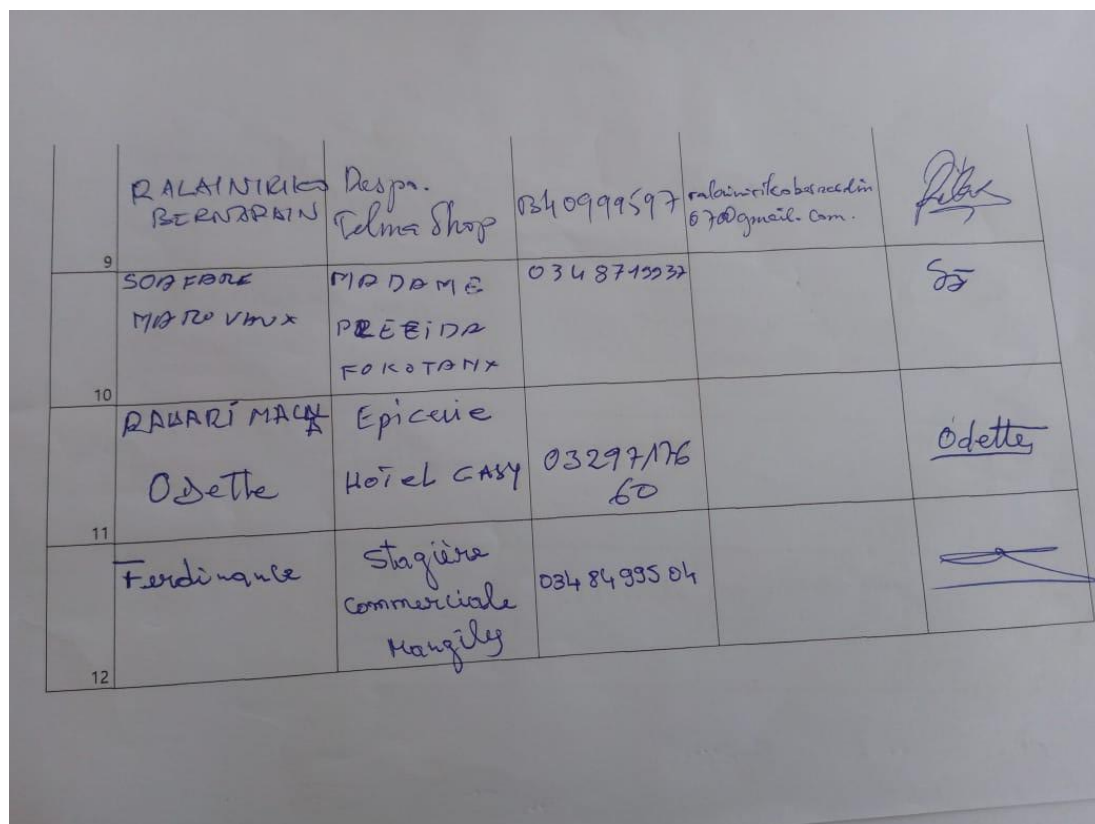 RALAINIRIKO
BERNARDIN
Respo.
Telma Shop
0340999597
ralainirikobernardin
67@gmail.com.
9
SOAFARE
MAROVAUX
MADAME
PREEIDA
FOKOTANY
10
Epicerie
Odette
HOTEL GASY
03297176
60
Odette
11
Ferdinance
Stagière
commerciale
Mangily
034 84 995 04
12